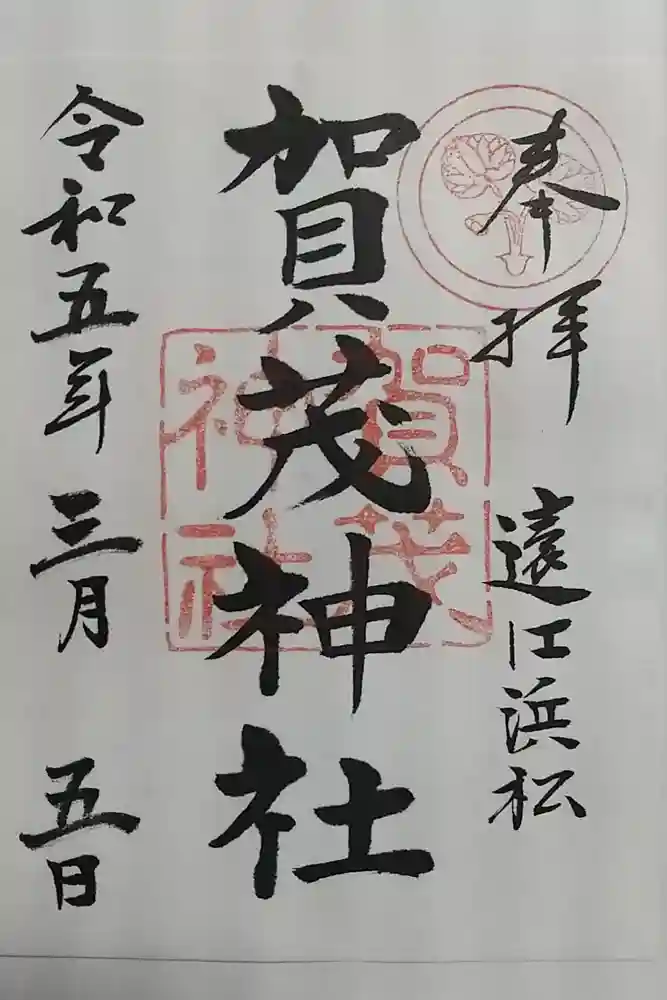 奉拝
遠江浜松
賀茂神社
賀茂
神社
令和五年 三月 五日